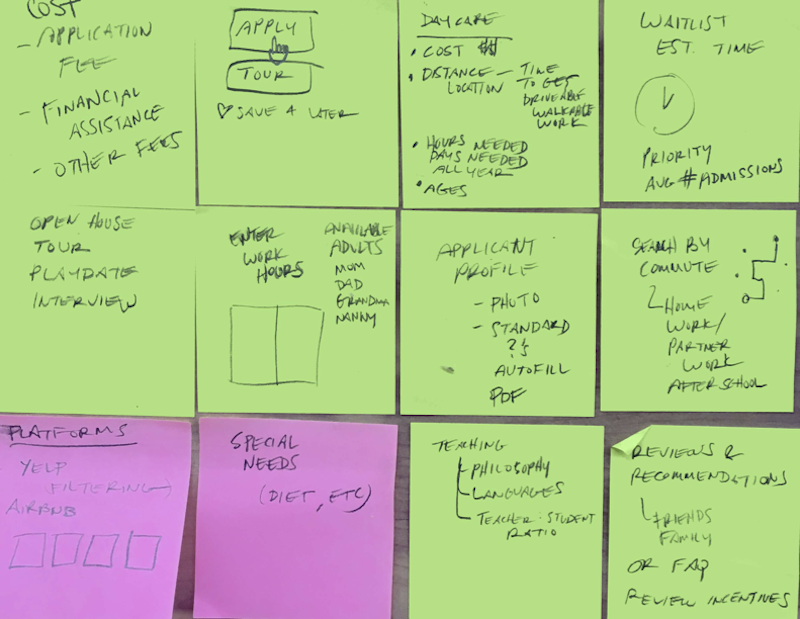 COST
- APPLICATION
FEE
- FINANCIAL
ASSISTANCE
- OTHER FEES
APPLY
TOUR
♡ SAVE 4 LATER
DAYCARE
• COST $$
• DISTANCE - TIME
LOCATION TO GET
DRIVEABLE
WALKABLE
WORK
• HOURS NEEDED
DAYS NEEDED
ALL YEAR
• AGES
WAITLIST
EST. TIME
PRIORITY
AVG # ADMISSIONS
OPEN HOUSE
TOUR
PLAYDATE
INTERVIEW
ENTER
WORK
HOURS
AVAILABLE
ADULTS
MOM
DAD
GRANDMA
NANNY
APPLICANT
PROFILE
- PHOTO
- STANDARD
?s
AUTOFILL
PDF
SEARCH BY
COMMUTE
HOME
WORK/
PARTNER
WORK
AFTERSCHOOL
PLATFORMS
YELP
(FILTERING)
AIRBNB
SPECIAL
NEEDS
(DIET, ETC)
TEACHING
PHILOSOPHY
LANGUAGES
TEACHER:STUDENT
RATIO
REVIEWS &
RECOMMENDATIONS
FRIENDS
FAMILY
OR FAQ
REVIEW INCENTIVES